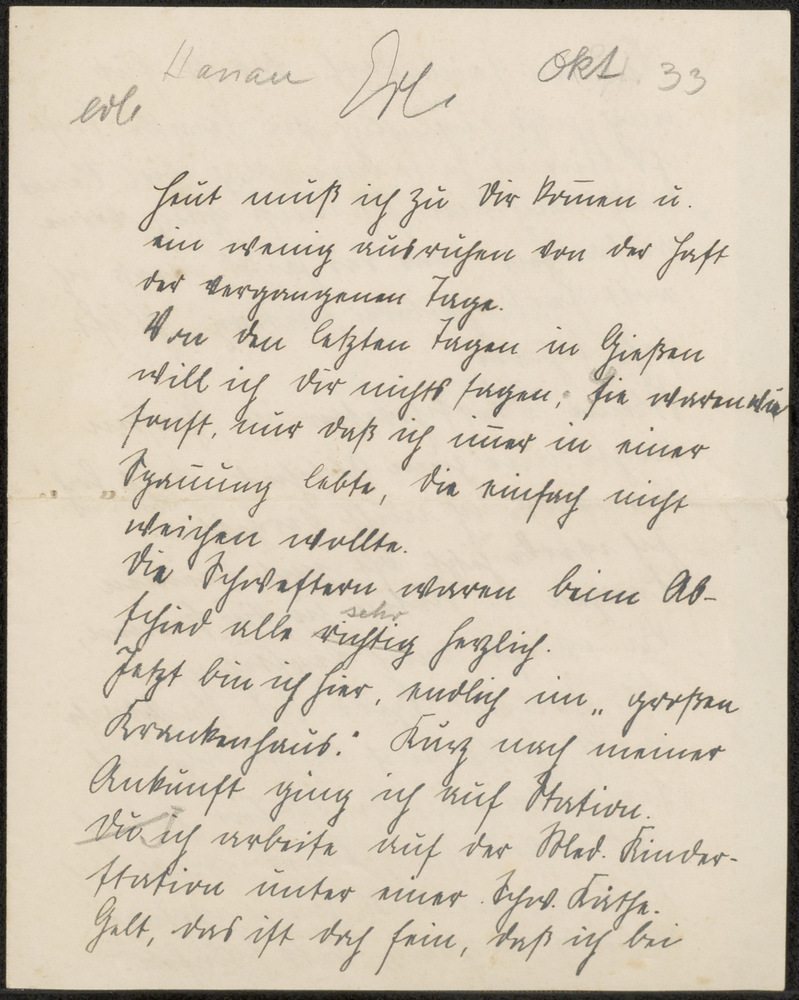 Hanau Okt 33
erl. Erl.
Heut muß ich zu Dir kom̄en u.
ein wenig ausruhen von der Hast
der vergangenen Tage.
Von den letzten Tagen in Gießen
will ich dir nichts sagen; sie waren wie
sonst, nur daß ich im̄er in einer
Span̄ung lebte, die einfach nicht
weichen wollte.
Die Schwestern waren beim Ab-
sehr
schied alle richtig herzlich.
Jetzt bin ich hier, endlich im „großen
Krankenhaus." Kurz nach meiner
Ankunft ging ich auf Station.
Du ich arbeite auf der Med. Kinder-
station unter einer Schw. Käthe.
Gelt, das ist doch fein, daß ich bei